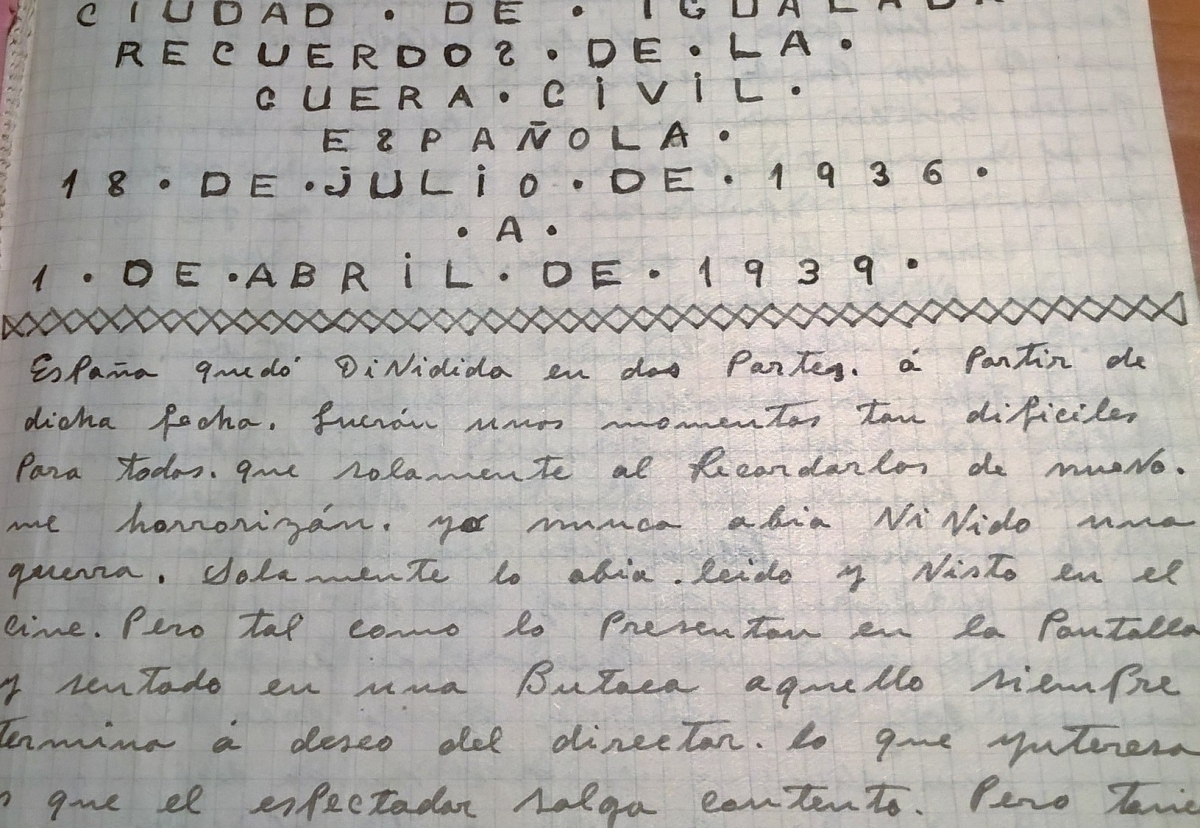 CIUDAD · DE · IGUALADA
RECUERDOS · DE · LA ·
GUERA · CiViL ·
ESPAÑOLA ·
18 · DE · JULiO · DE · 1936 ·
· A ·
1 · DE · ABRiL · DE · 1939 ·
España quedó DiVidida en dos Partes. á Partir de
dicha fecha. fuerón unos momentos tan dificiles
Para todos. que solamente al Recordarlos de nuevo.
me horrorizán. yo nunca abia ViVido una
guerra. Solamente lo abia. leido y Visto en el
cine. Pero tal como lo Presentan en la Pantalla
y sentado en una Butaca aquello siempre
termina á deseo del director. lo que ynteresa
que el espectador salga contento. Pero